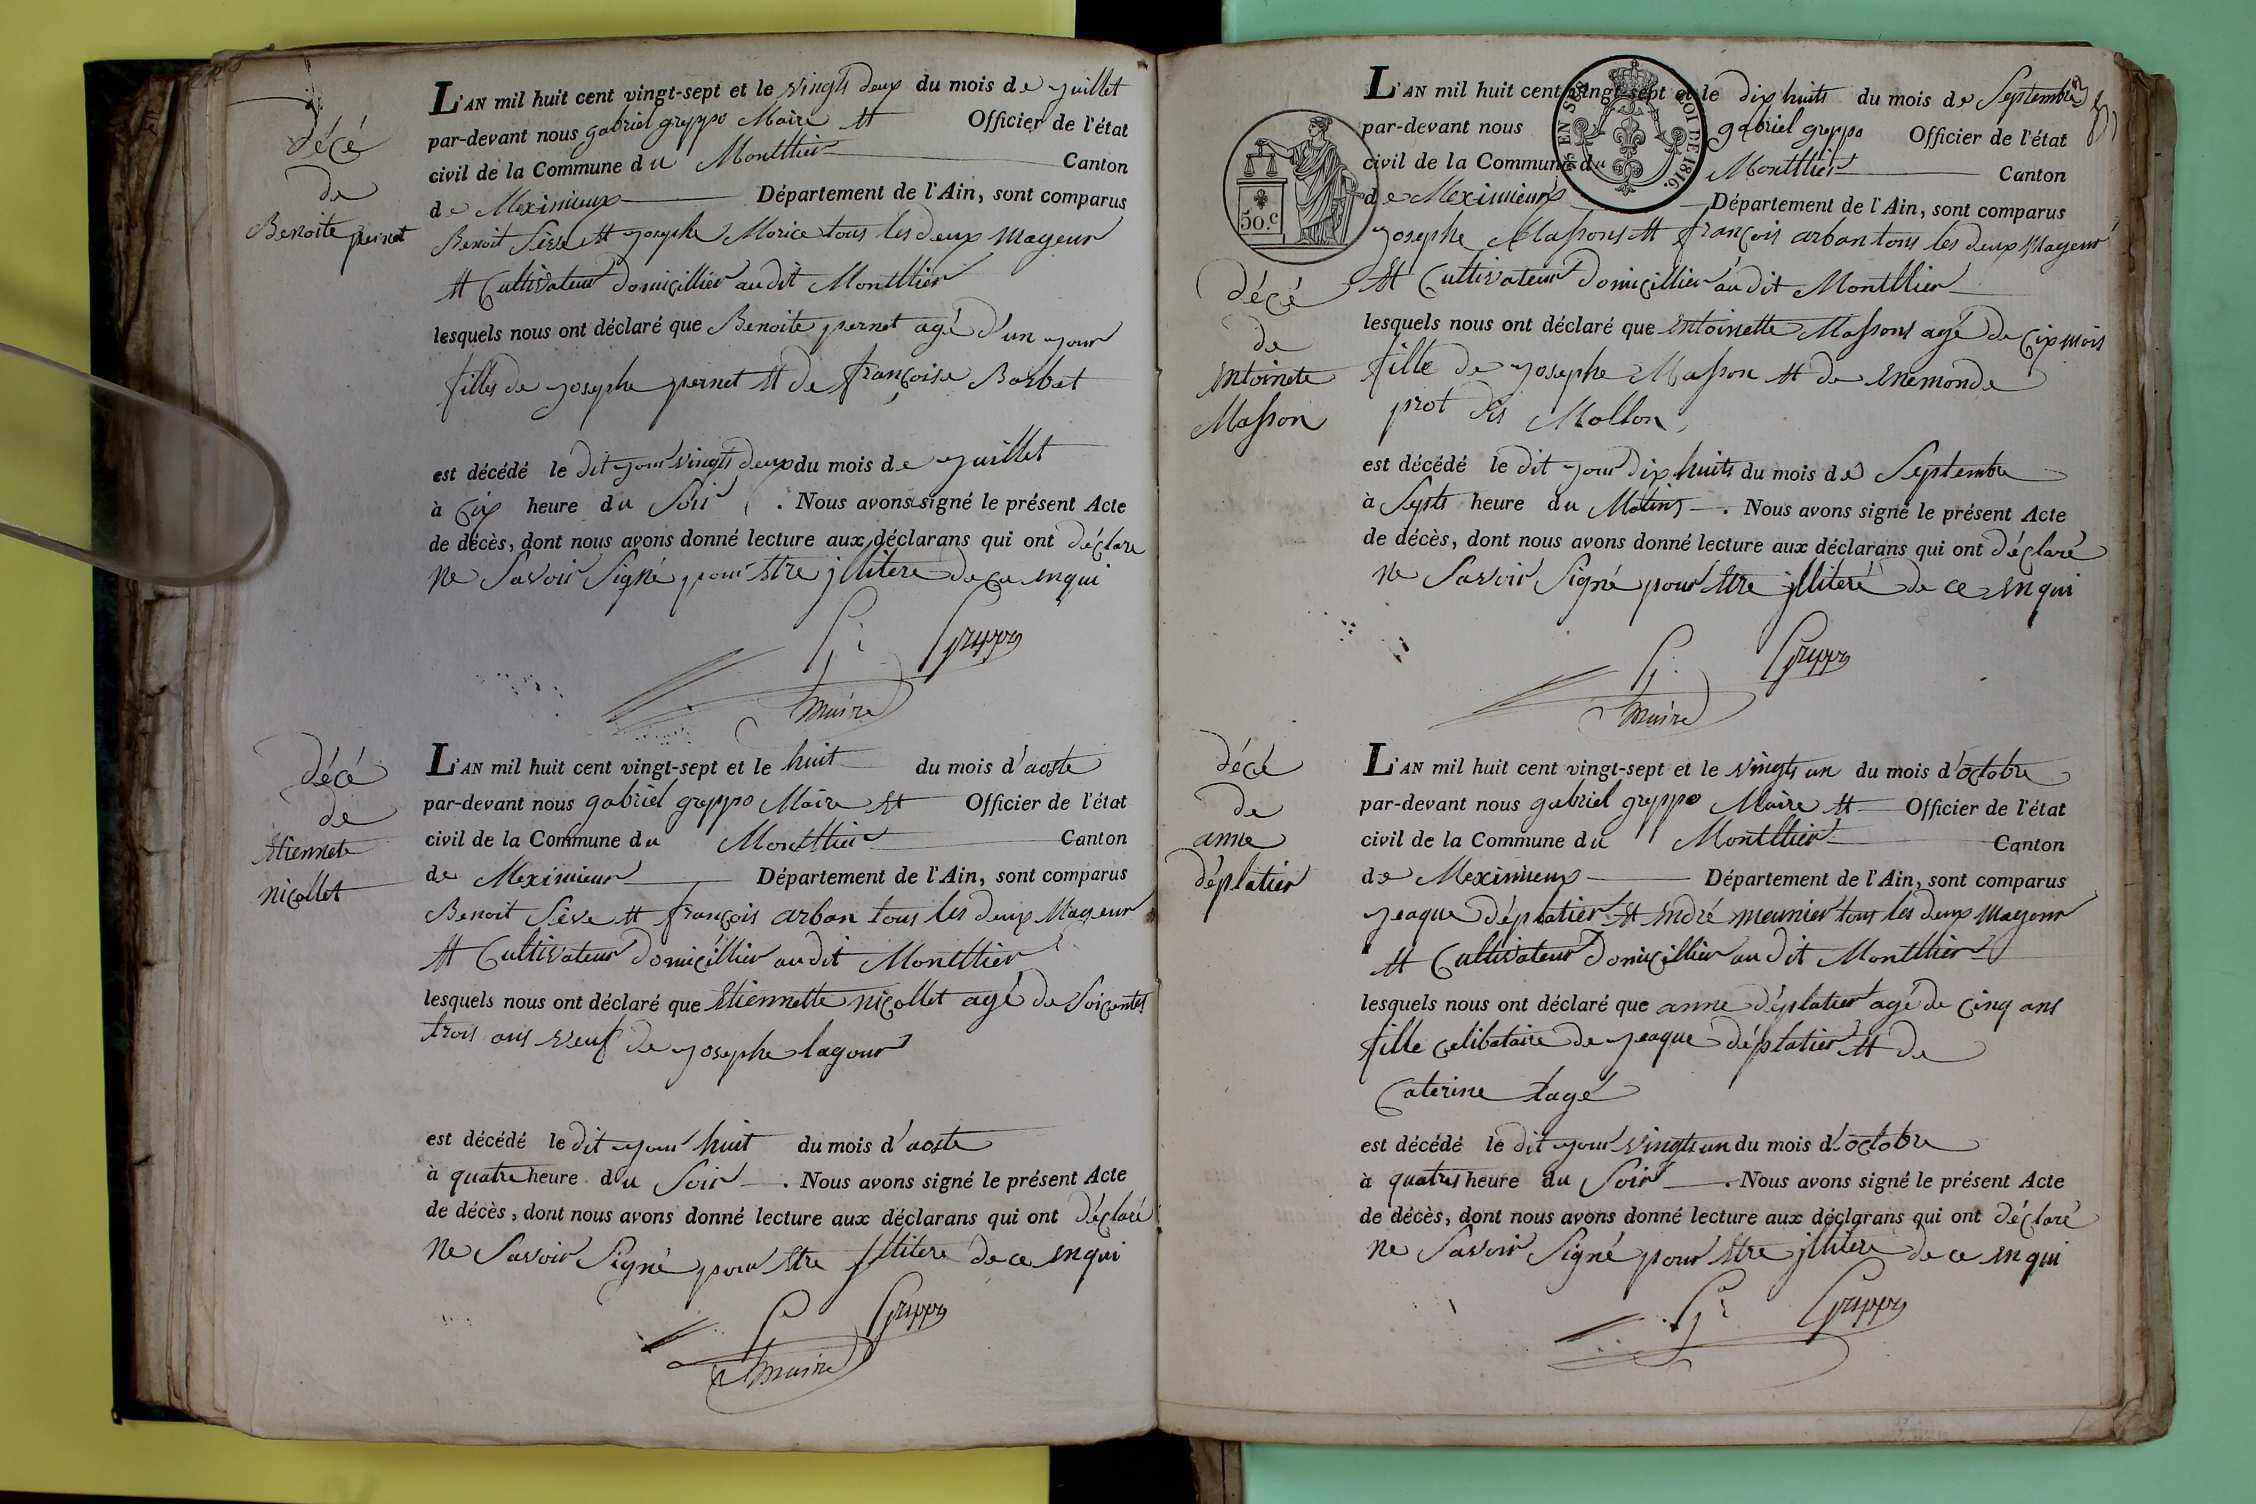 décé
de
Benoite pernet
L'AN mil huit cent vingt-sept et le vingts deux du mois de juillet
par-devant nous gabriel greppo Maire et Officier de l'état
civil de la Commune du Monthier Canton
de Meximieux Département de l'Ain, sont comparus
Benoit Sève et josephe Morice tous les deux Mageur
et Cultivateur domicillier audit Montllier
lesquels nous ont déclaré que Benoite pernet agé d'un jour
filles de josephe pernet et de françoise Barbet
est décédé le dit jour vingts deux du mois de juillet
à Cix heure du Soir . Nous avons signé le présent Acte
de décès, dont nous avons donné lecture aux déclarans qui ont déclare
ne Savoir Signé pour Etre jlliteré de ce Enqui
G: Greppo
maire
décé
de
Etiennete
nicollet
L'AN mil huit cent vingt-sept et le huit du mois d'aoste
par-devant nous gabriel greppo Maire et Officier de l'état
civil de la Commune du Montllier Canton
de Meximieux Département de l'Ain, sont comparus
Benoit Sève et françois arban tous les deux Mageur
et Cultivateur domicillier audit Montllier
lesquels nous ont déclaré que Etiennette nicollet agé de Soicentes
trois ans veuf de josephe lagour
est décédé le dit jour huit du mois d'aoste
à quatre heure du Soir . Nous avons signé le présent Acte
de décès, dont nous avons donné lecture aux déclarans qui ont déclaré
ne Savoir Signé pour Etre jllitere de ce Enqui
G Greppo
maire
50.c
EN SUS
LOI DE 1816.
L'AN mil huit cent vingt-sept et le dix huits du mois de Septembre
par-devant nous gabriel greppo Officier de l'état
civil de la Commune du Montllier Canton
de Meximieux Département de l'Ain, sont comparus
josephe Massons et françois arban tous les deux Mageur
et Cultivateur domicillier audit Montllier
décé
de
Entoinete
Masson
lesquels nous ont déclaré que Entoinette Massons agé de Cix mois
fille de josephe Masson et de Enemonde
prot dis Mollon
est décédé le dit jour dix huits du mois de Septembre
à Septs heure du Matins . Nous avons signé le présent Acte
de décès, dont nous avons donné lecture aux déclarans qui ont déclaré
ne Savoir Signé pour Etre jlliteré de ce Enqui
G: Greppo
maire
décé
de
anne
déplatier
L'AN mil huit cent vingt-sept et le vingts un du mois d'octobre
par-devant nous gabriel greppo Maire et Officier de l'état
civil de la Commune du Montllier Canton
de Meximieux Département de l'Ain, sont comparus
jeaque déplatier et André meunier tous les deux Mageur
et Cultivateur domicillier audit Montllier
lesquels nous ont déclaré que anne déplatier agé de Cinq ans
fille celibataire de jeaque déplatier et de
Caterine tagé
est décédé le dit jour vingts un du mois d'octobre
à quatres heure du Soir . Nous avons signé le présent Acte
de décès, dont nous avons donné lecture aux déclarans qui ont déclaré
ne Savoir Signé pour Etre jllitere de ce Enqui
G: Greppo